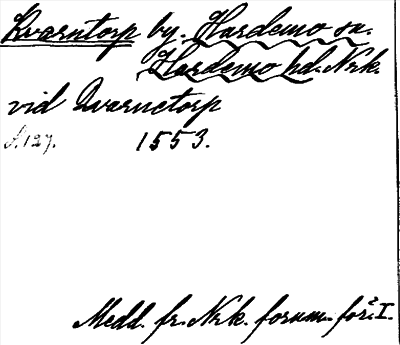 Kvarntorp by. Hardemo sn.
Hardemo hd. Nrk.
vid Qvarnetorp
s. 127. 1553.
Medd. fr. Nrk. fornm. för. I.